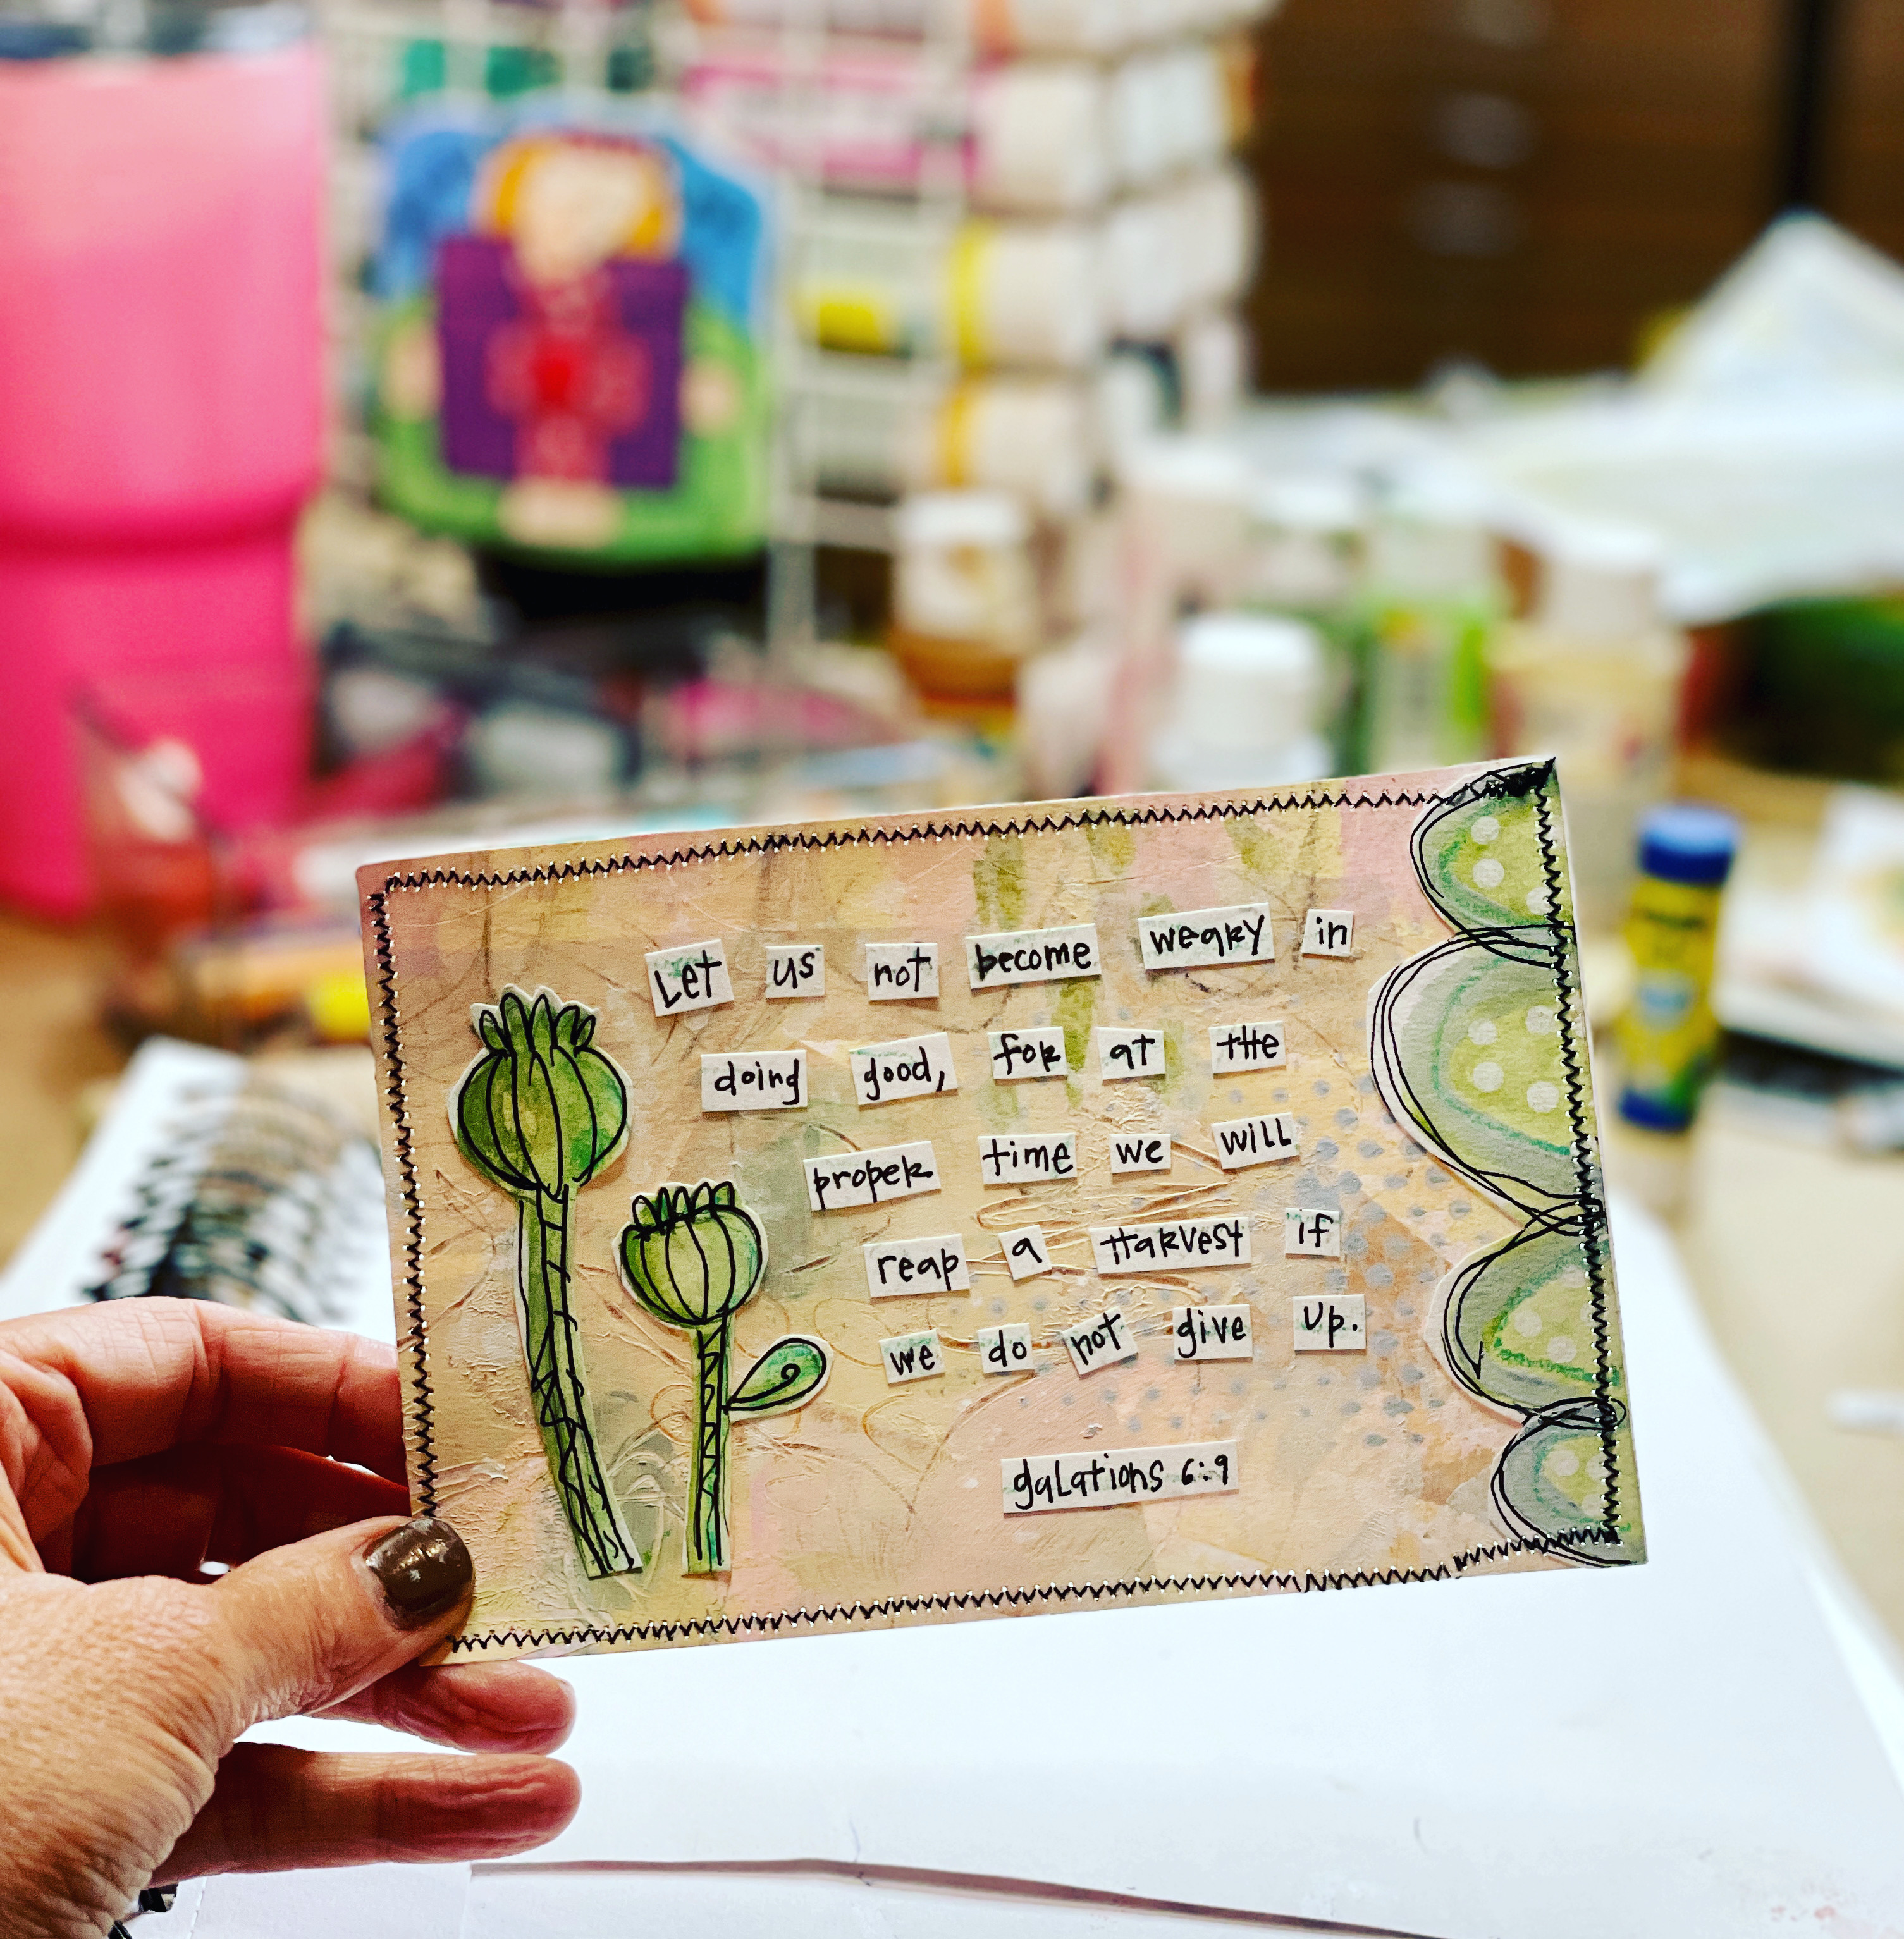 Let us not become weary in
doing good, for at the
proper time we will
reap a Harvest if
we do not give up.
galations 6:9